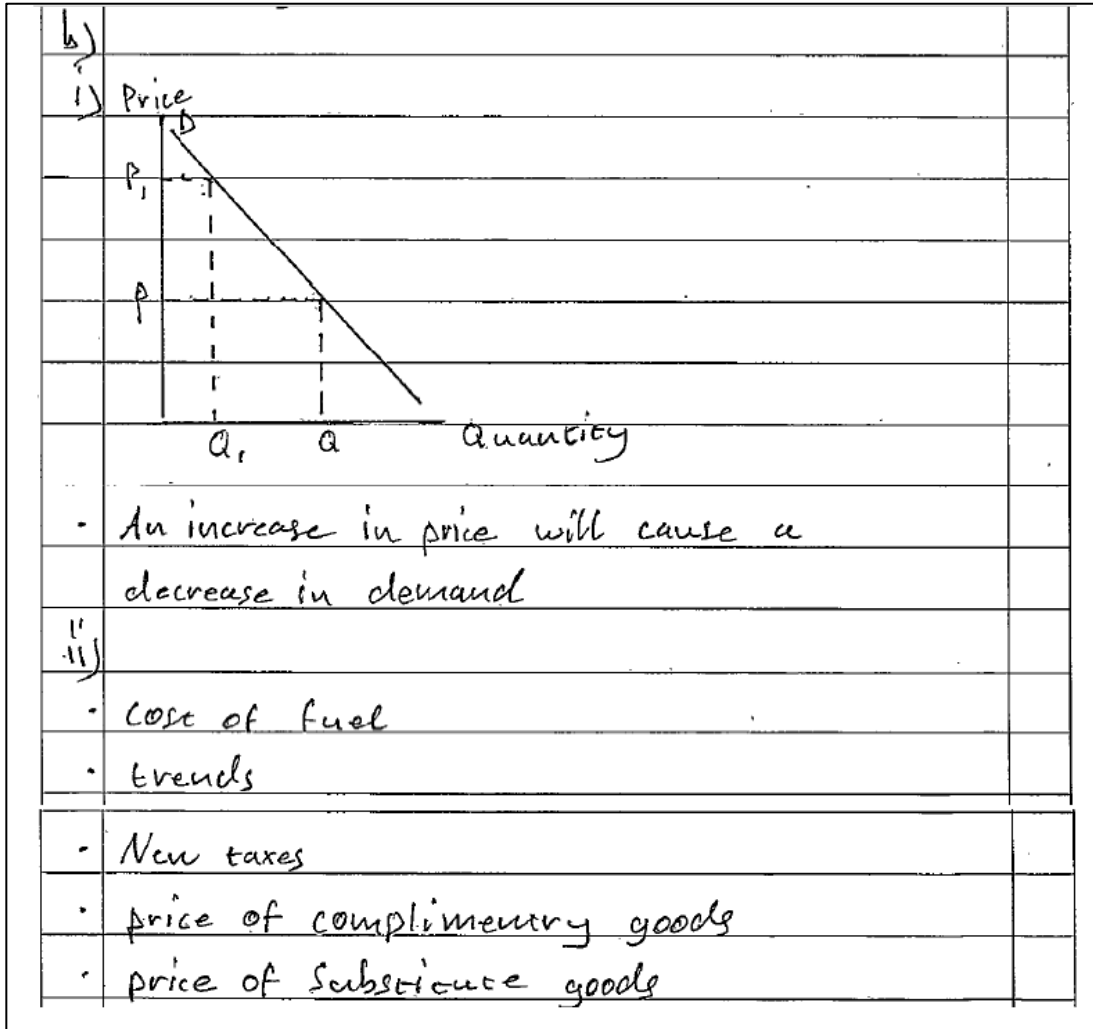 b)
i) Price
D
P₁
P
Q₁ Q Quantity
· An increase in price will cause a
decrease in demand
ii)
· cost of fuel
· trends
· New taxes
· price of complimentry goods
· price of substitute goods